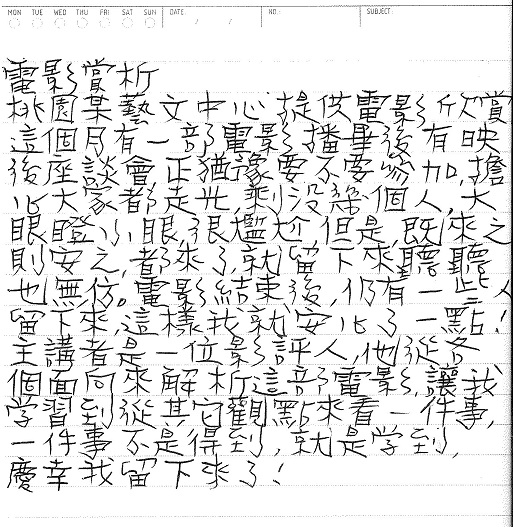 MON TUE WED THU FRI SAT SUN DATE: / / NO.: SUBJECT:
電影賞析
桃園某藝文中心提供電影欣賞
這個月有一部電影播畢後有映
後座談會正猶豫要不要參加,擔
心大家都走光,剩沒幾個人,大
眼瞪小眼很尷尬但是,既來之
則安之,都來了,就留下來聽聽
也無仿。電影結束後,仍有一些人
留下來,這樣我就安心了一點!
主講者是一位影評人,他從各
個面向來解析這部電影,讓我
学習到從其它觀點來看一件事,
一件事不是得到,就是学到,
慶幸我留下來了!